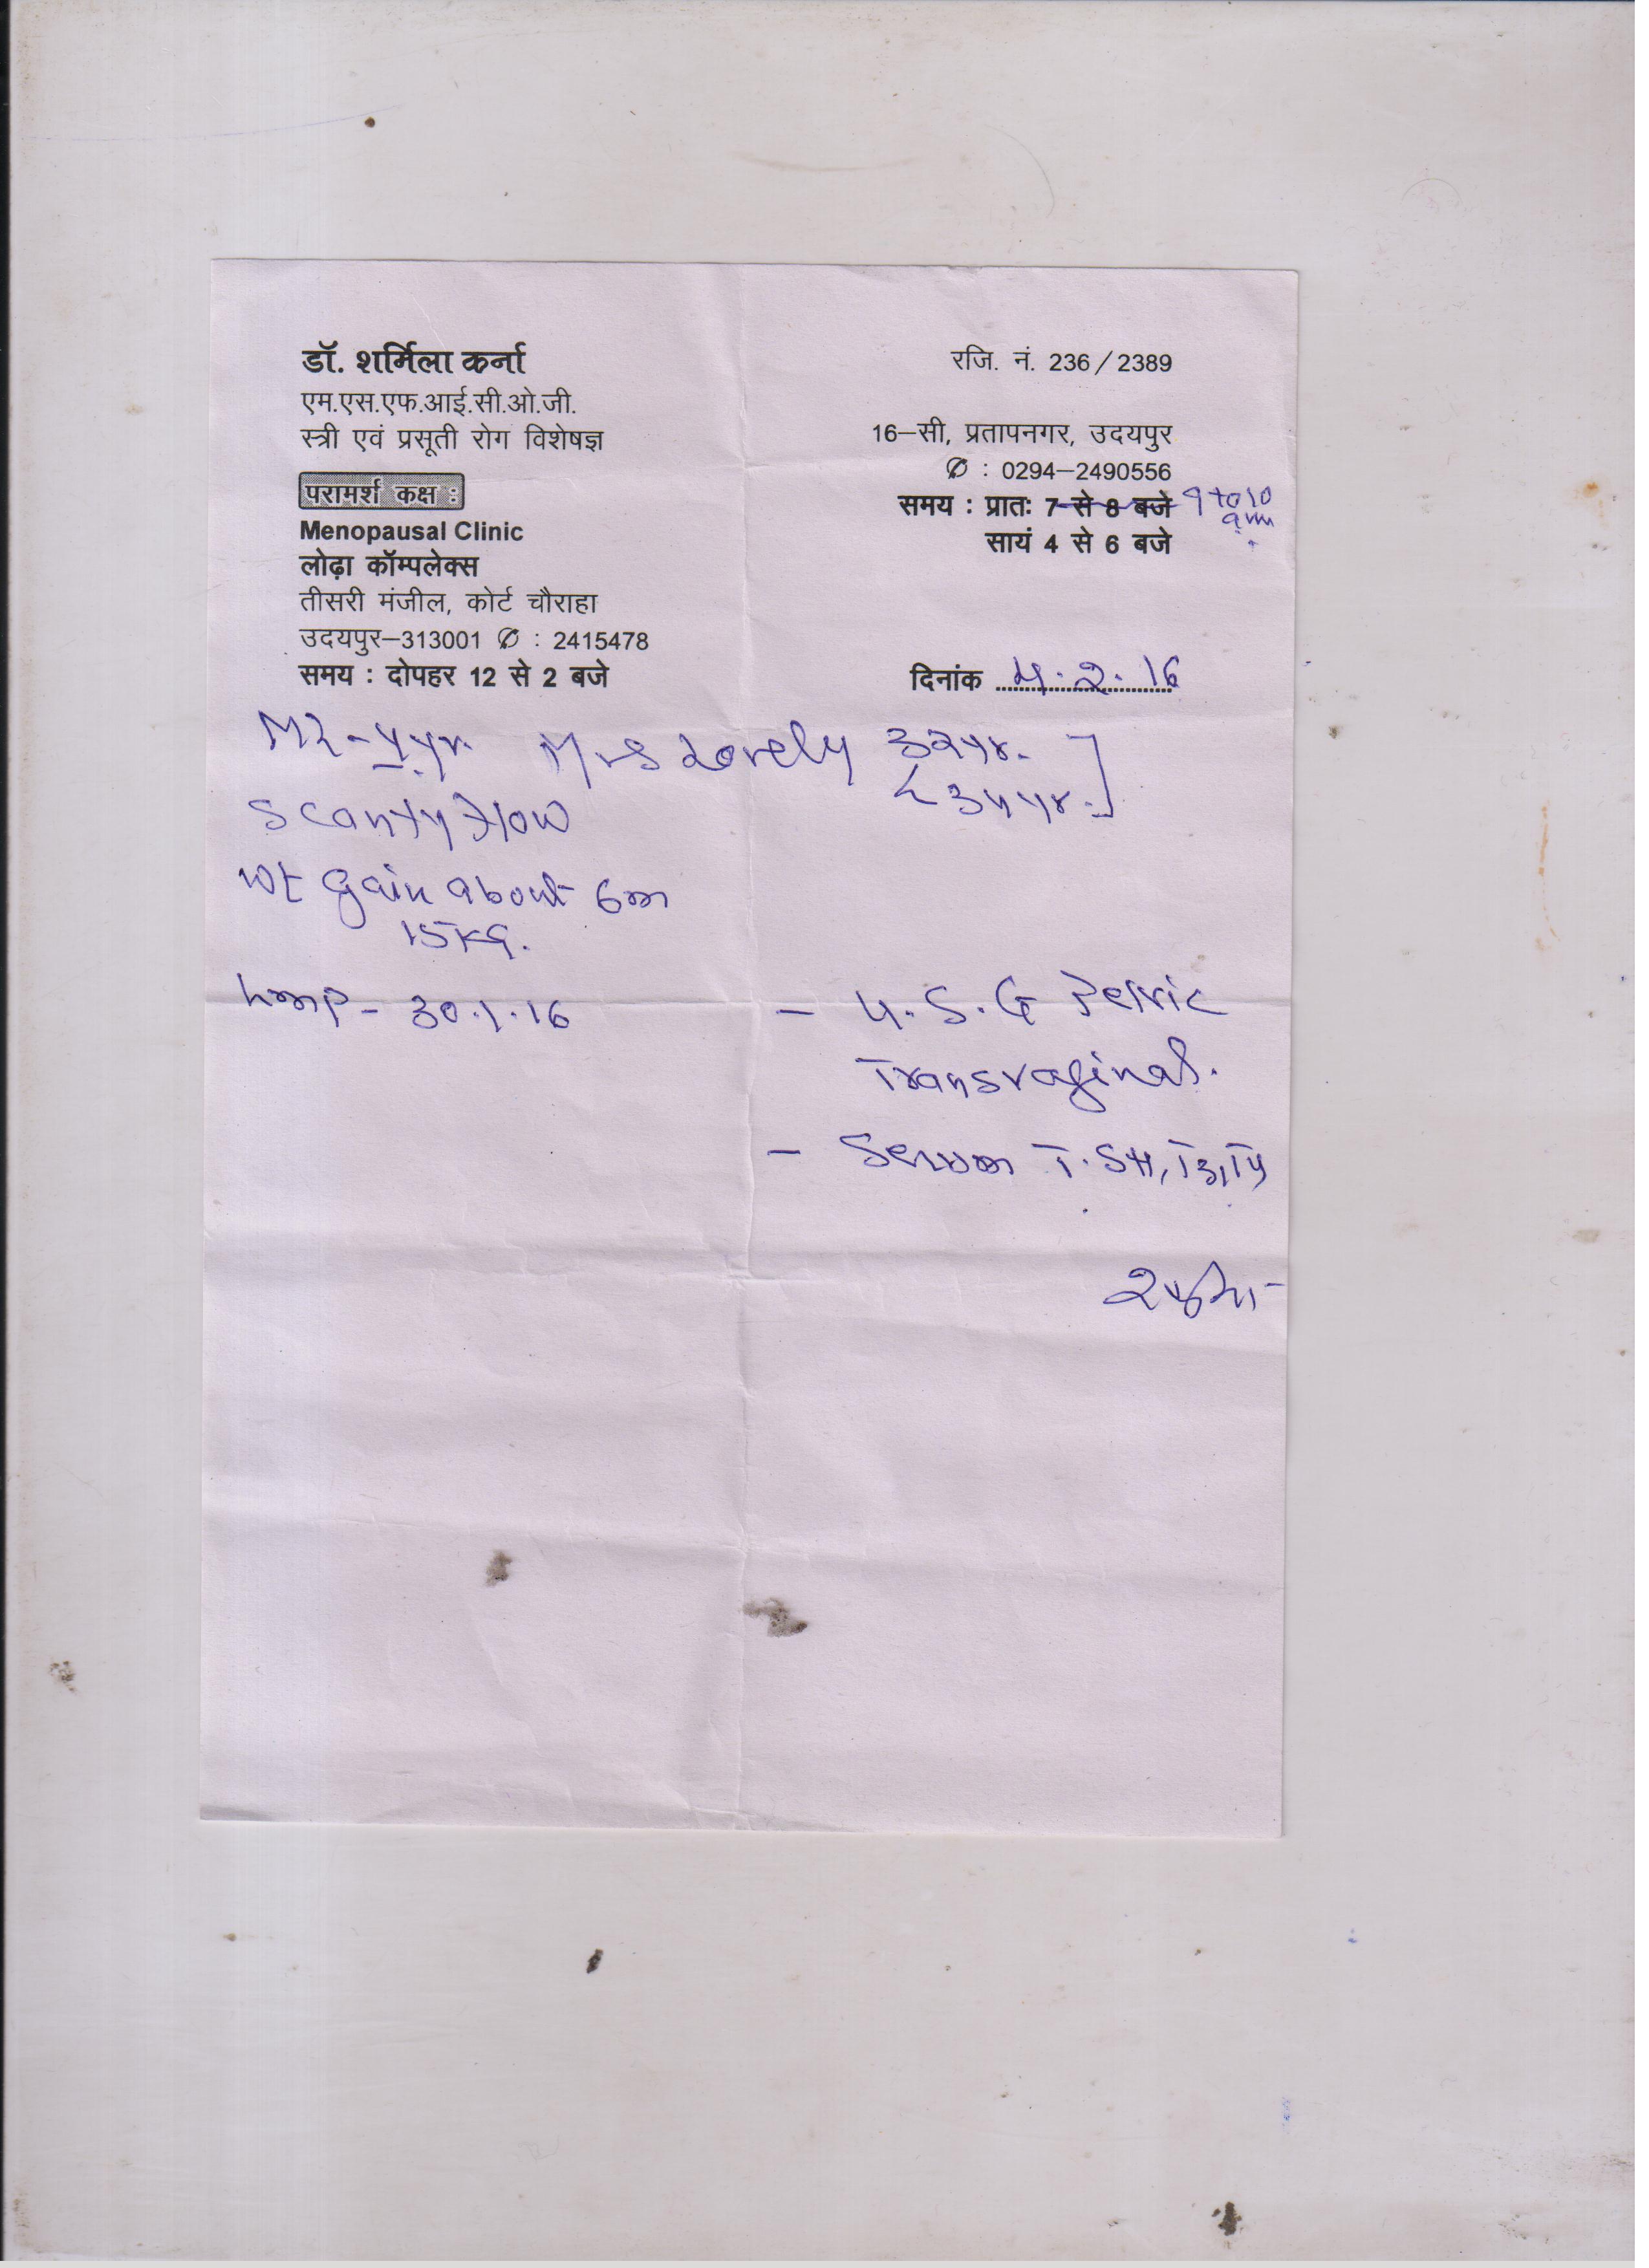 डॉ. शर्मिला कर्ना
एम.एस.एफ.आई.सी.ओ.जी.
स्त्री एवं प्रसूती रोग विशेषज्ञ
परामर्श कक्ष :
Menopausal Clinic
लोढ़ा कॉम्पलेक्स
तीसरी मंजील, कोर्ट चौराहा
उदयपुर–313001 ✆ : 2415478
समय : दोपहर 12 से 2 बजे
रजि. नं. 236 / 2389
16–सी, प्रतापनगर, उदयपुर
✆ : 0294–2490556
समय : प्रातः 7 से 8 बजे 9 to 10
am
सायं 4 से 6 बजे
दिनांक 4.2.16
4yr. Mrs Lovely 32yr.
34yr.]
scanty flow
wt gain about 6m
15 kg.
Lmp - 30.1.16
- U.S.G Pelvic
Transvaginal.
- Serum T.SH, T3, T4